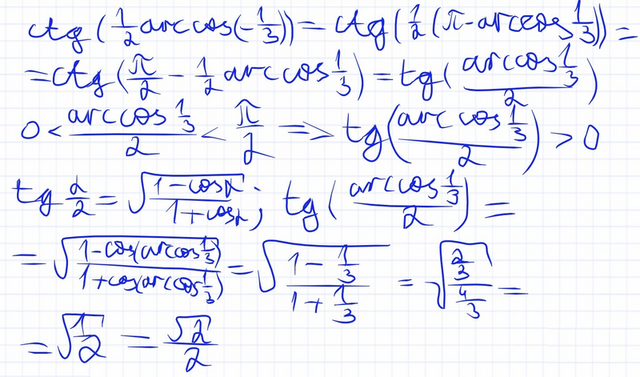 ctg(1/2 arccos(-1/3)) = ctg(1/2(π - arccos 1/3)) =
= ctg(π/2 - 1/2 arccos 1/3) = tg(arccos 1/3 / 2)
0 < arccos 1/3 / 2 < π/2 => tg(arccos 1/3 / 2) > 0
tg α/2 = √((1-cosα)/(1+cosα)); tg(arccos 1/3 / 2) =
= √((1-cos(arccos 1/3))/(1+cos(arccos 1/3))) = √((1 - 1/3)/(1 + 1/3)) = √((2/3)/(4/3)) =
= √(1/2) = √2/2